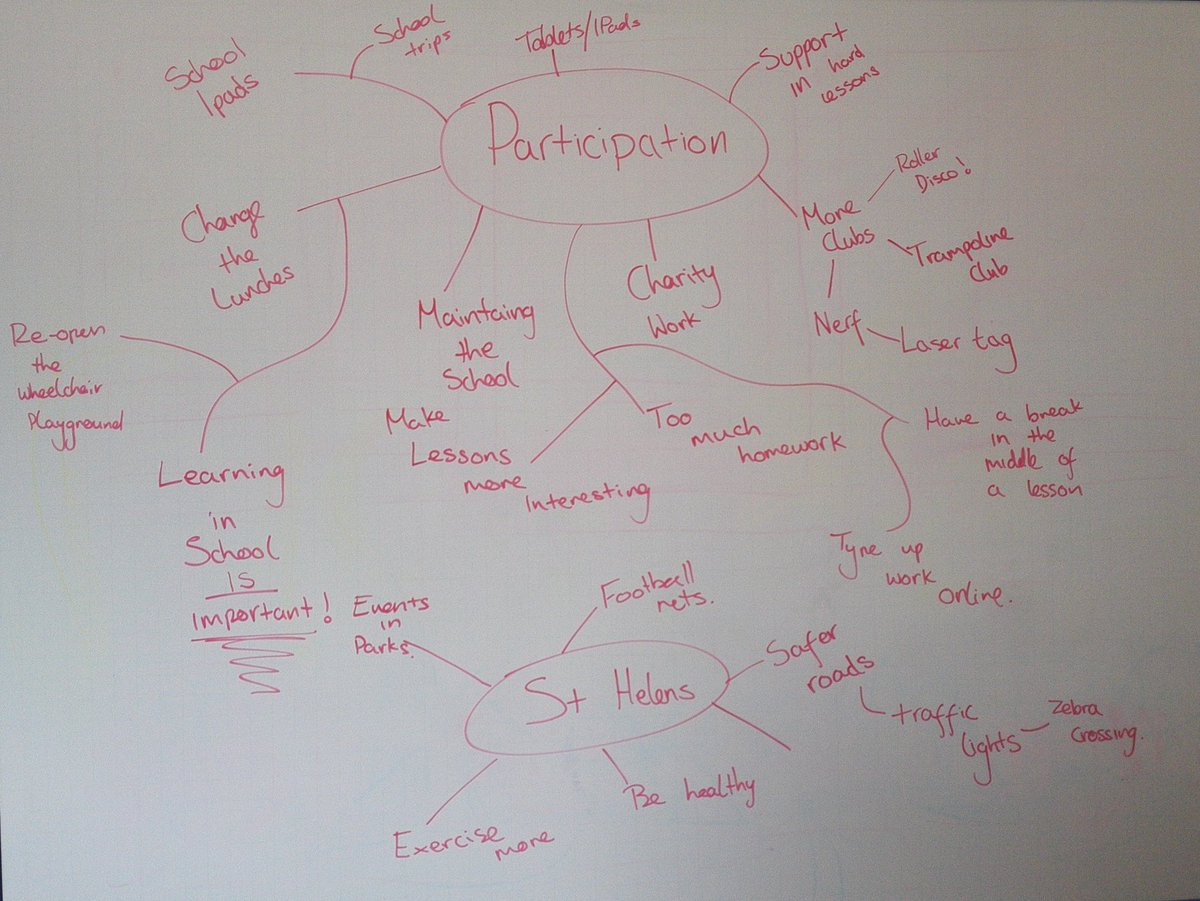 School
trips
School
Ipads
Tablets/IPads
Support
in hard
lessons
Participation
Roller
Disco!
More
Clubs
Trampoline
Club
Nerf
Laser tag
Change
the
Lunches
Charity
Work
Maintaing
the
School
Re-open
the
wheelchair
Playground
Make
Lessons
more
Interesting
Too
much
homework
Have a break
in the
middle of
a lesson
Learning
in
School
is
important!
Tyne up
work
online.
Events
in
Parks.
Football
nets.
St Helens
Safer
roads
traffic
lights
Zebra
Crossing.
Be healthy
Exercise
more